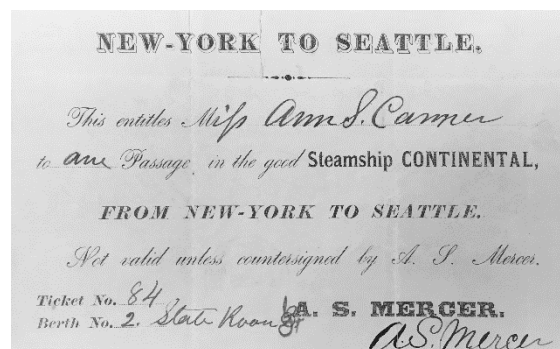 NEW-YORK TO SEATTLE.
This entitles Miss Ann S. Conner
to one Passage, in the good Steamship CONTINENTAL,
FROM NEW-YORK TO SEATTLE.
Not valid unless countersigned by A. S. Mercer.
Ticket No. 84
Berth No. 2. State Room
A. S. MERCER.
A.S. Mercer